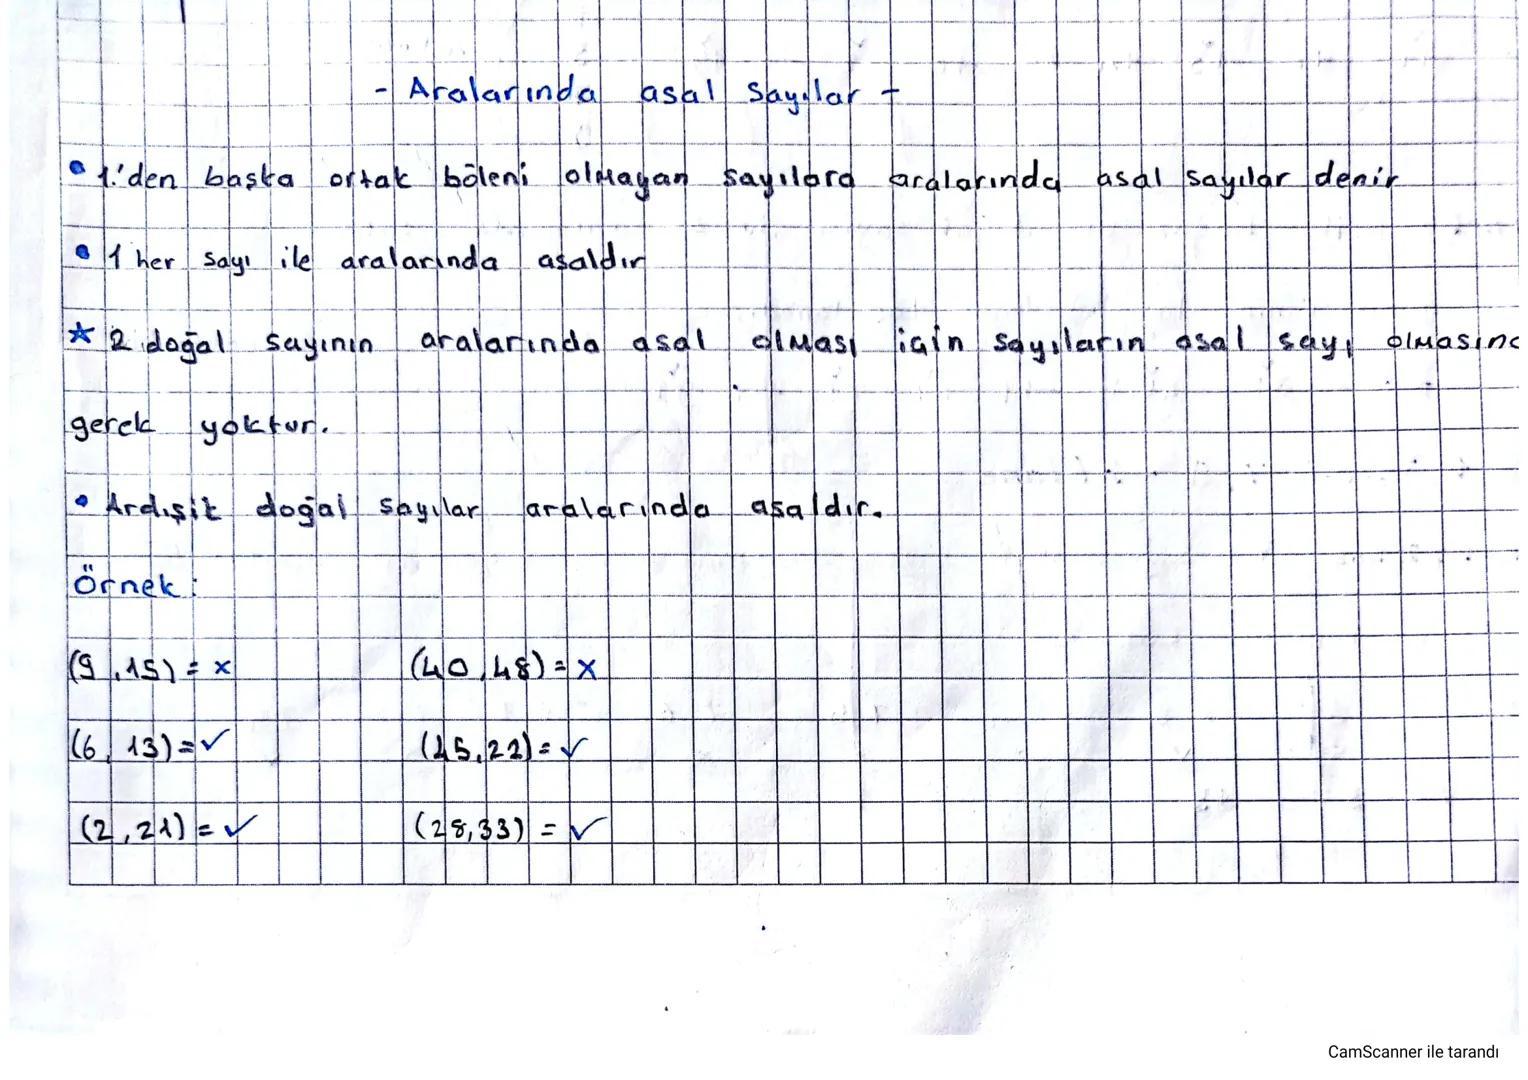 - Aralarında asal sayılar -
• 1.'den başka ortak böleni olmayan sayılara aralarında asal sayılar denir
• 1 her sayı ile aralarında asaldır
★ 2 doğal sayının aralarında asal olması için sayıların asal sayı olmasına
gerek yoktur.
• Ardışık doğal sayılar aralarında asaldır.
Örnek:
(9,15) = x (40,48) = x
(6,13) = ✓ (15,22) = ✓
(2,21) = ✓ (28,33) = ✓
CamScanner ile tarandı